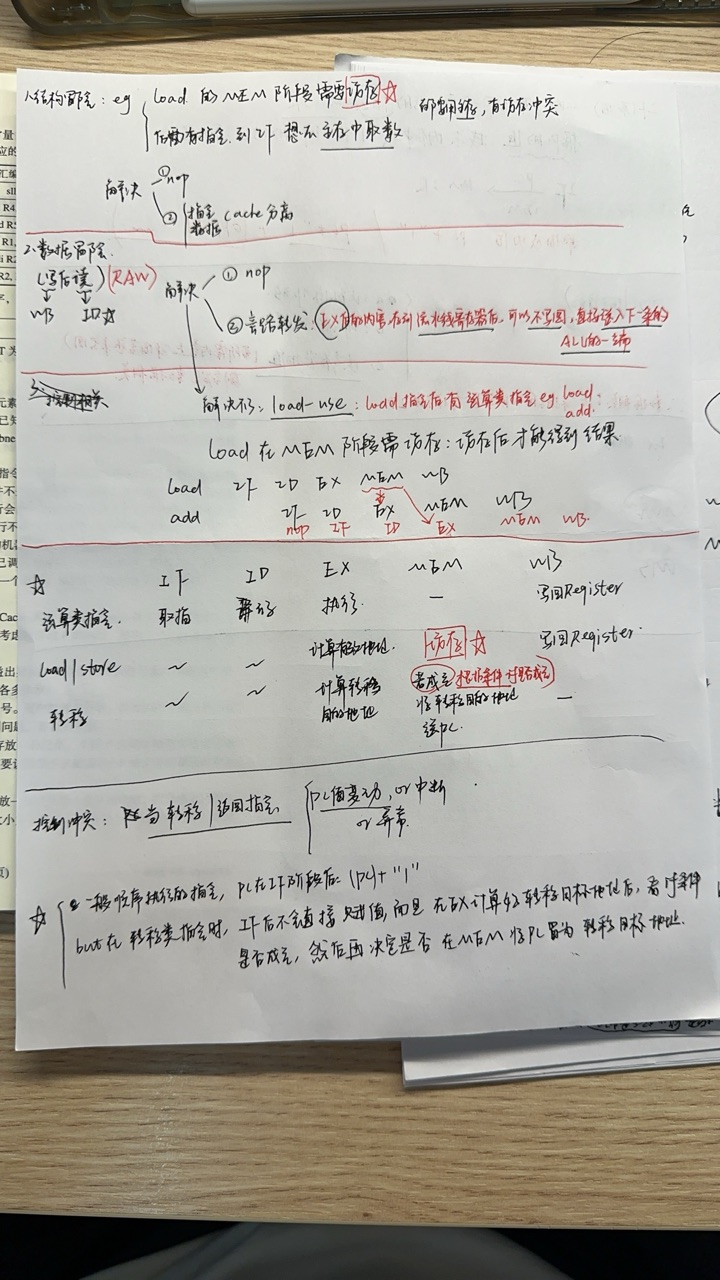 1.结构冒险：eg Load 的 MEM 阶段需要访存☆ 都要用主存，有访存冲突
后面有指令.到 IF 想去主存中取数
解决 ①nop
② 指令 数据 Cache 分离
2.数据冒险
(写后读) (RAW)
WB ID☆
解决 ① nop
② 旁路转发：EX后的内容，存到流水线寄存器后，可以不写回，直接送入下一条的
ALU的一端
3.控制相关
解决不了：load-use：load指令后有运算类指令 eg. load
add.
Load 在 MEM 阶段需访存：访存后才能得到结果.
load IF ID EX MEM WB
add IF ID EX MEM WB
nop IF ID EX MEM WB.
☆ IF ID EX MEM WB
运算类指令. 取指 译码 执行. — 写回Register
Load/store ~ ~ 计算存取地址. 访存☆ 写回Register.
转移 ~ ~ 计算转移目的地址 若成立 根据条件 将转移目的地址送PC. —
控制冲突： 当转移/返回指令 PC值变动, or 中断
or 异常.
☆ 一般顺序执行的指令，PC在IF阶段后：(PC)+"1"
but在转移类指令时，IF后不会直接赋值，而是在EX计算好转移目标地址后，看条件
是否成立，然后再决定是否在MEM将PC置为转移目标地址.